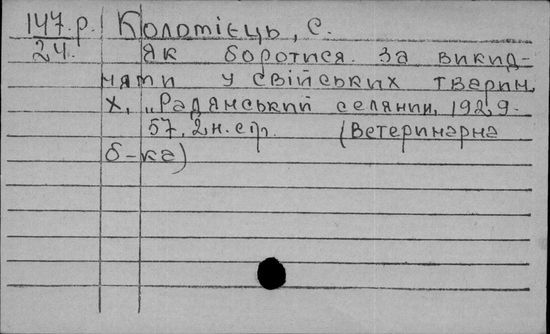 147.р. Коломієць, С.
24. Як боротися за викид-
нями у свійських тварин.
Х., „Радянський селянин, 1929.
57, 2 н. стр. (Ветеринарна
б-ка)